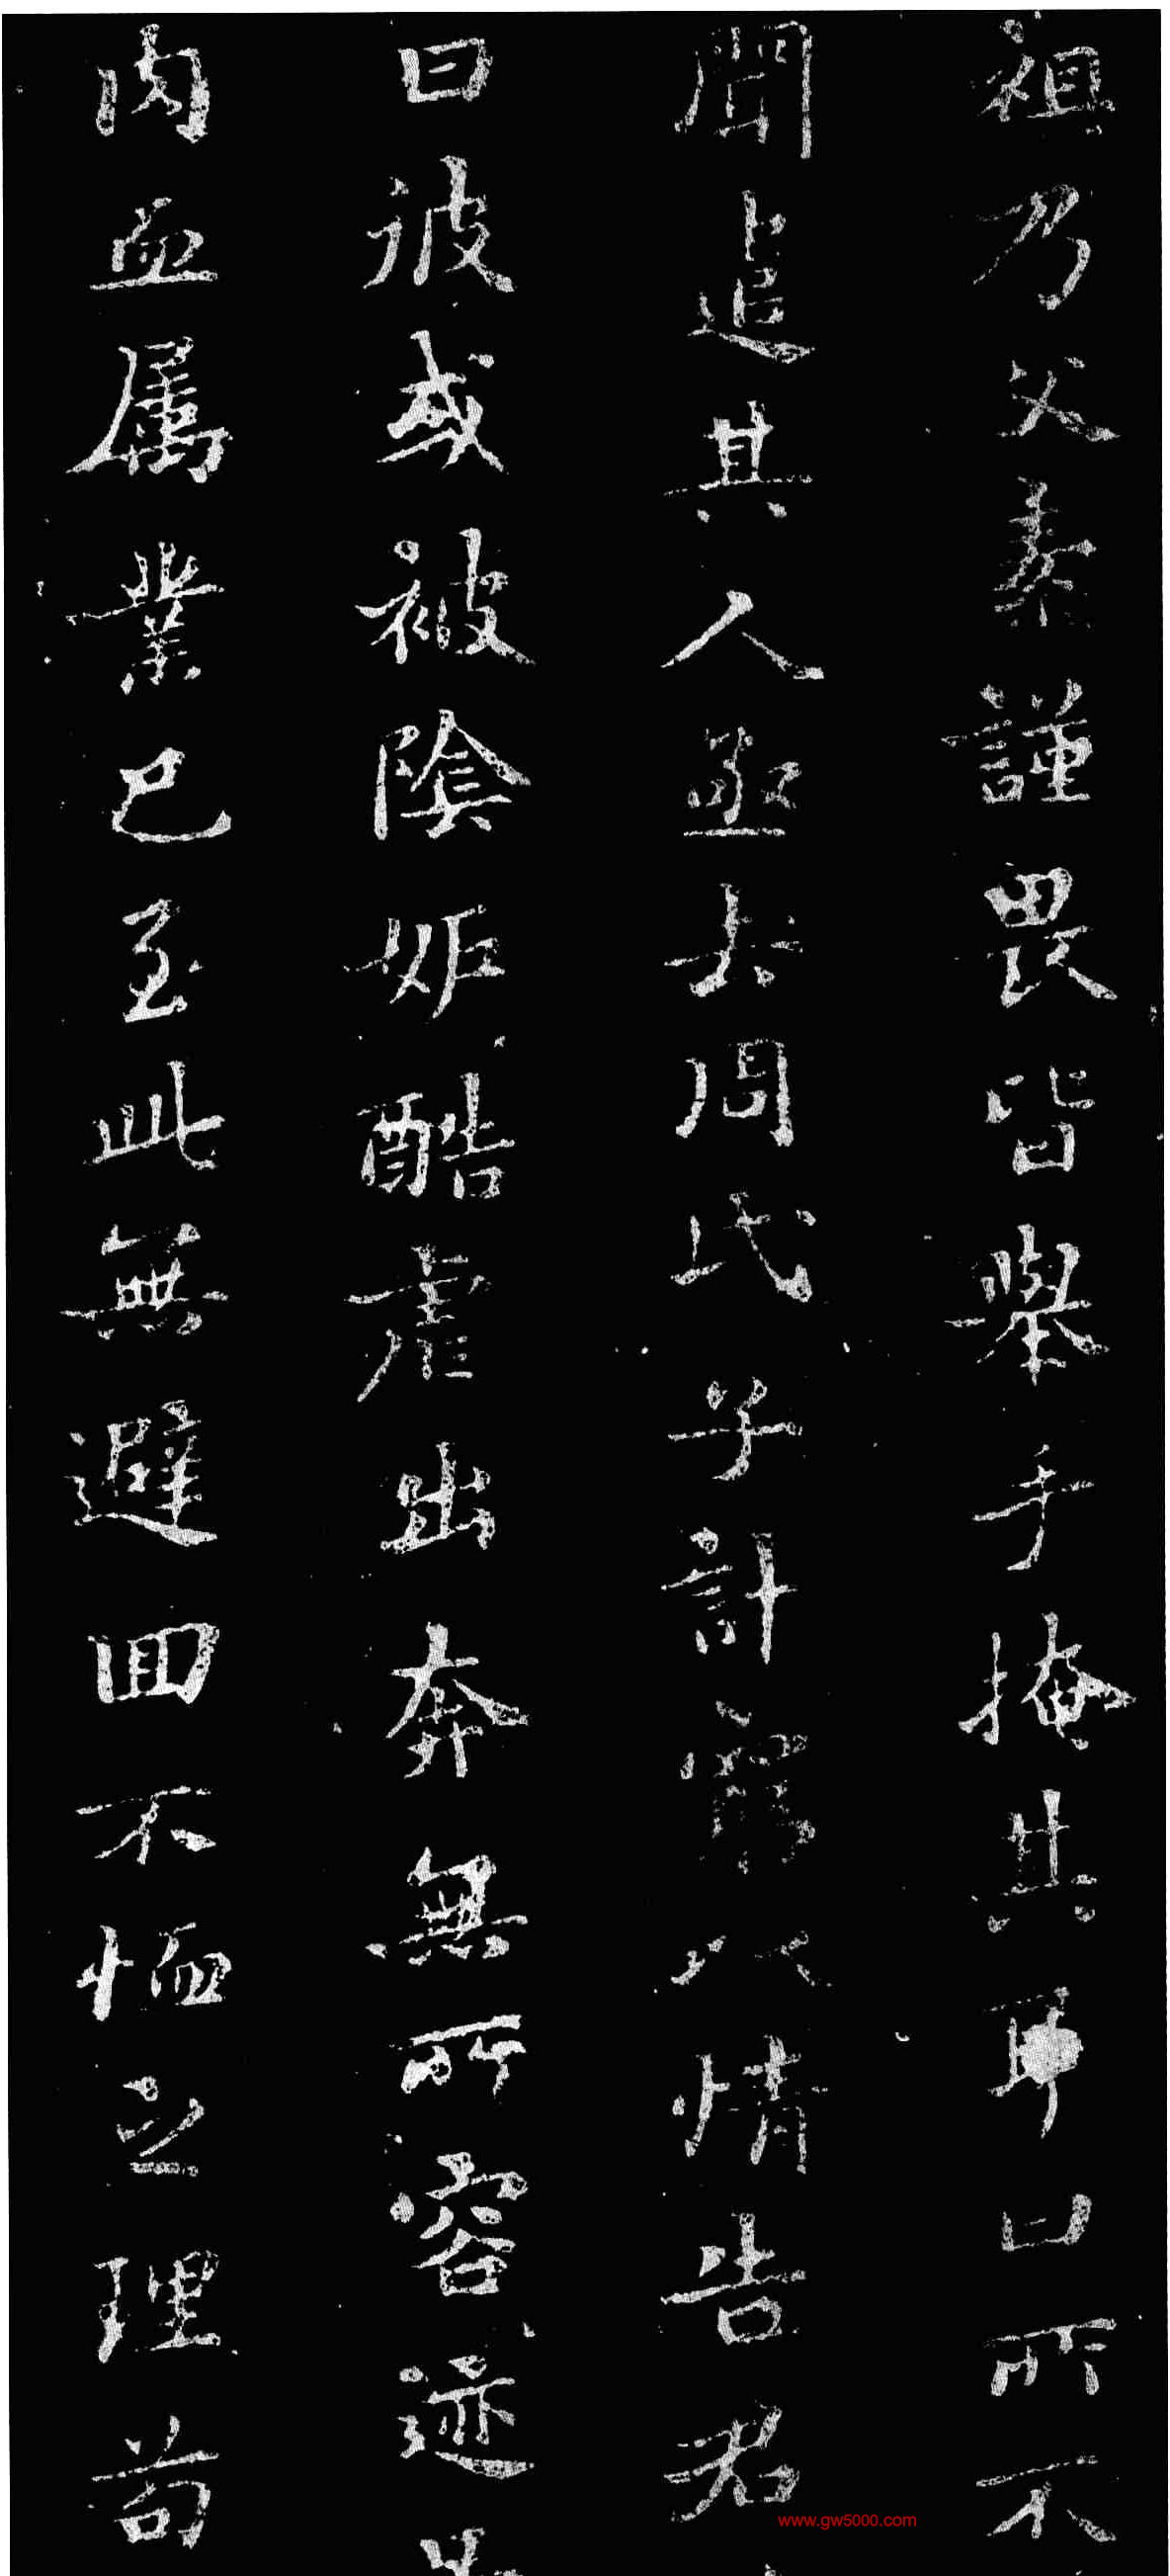 祖乃父素謹畏皆舉手掩其耳口所不
聞追其人亟去周氏子計窮以情告君
曰彼或被陰妒酷虐出奔無所容迹
內血属業已至此無避回不恤之理苟
www.gw5000.com